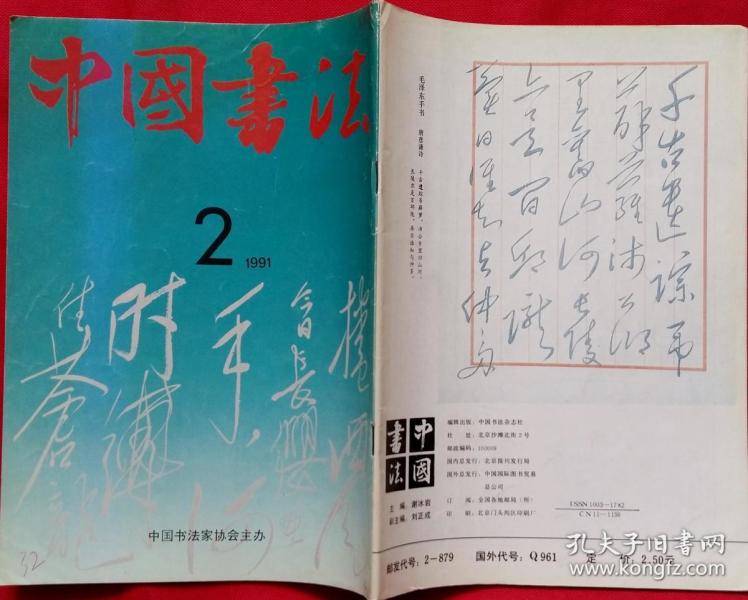 中國書法
2
1991
今日長纓
在手，
何時縛
住蒼龍
中国书法家协会主办
32
毛泽东手书 唐彦谦诗
千古遗踪吊
薜萝沛公湖
里旧山河长陵
亦是闲邱陇
异日谁知与仲多
中國書法
主编 谢冰岩
副主编 刘正成
编辑出版：中国书法杂志社
社 址：北京沙滩北街2号
邮政编码：100009
国内总发行：北京报刊发行局
国外总发行：中国国际图书贸易
总公司
订 阅：全国各地邮局（所）
印 刷：北京门头沟区印刷厂
ISSN 1003-1782
CN 11-1136
邮发代号：2-879 国外代号：Q961 定 价：2.50元
孔夫子旧书网
www.kongfz.com